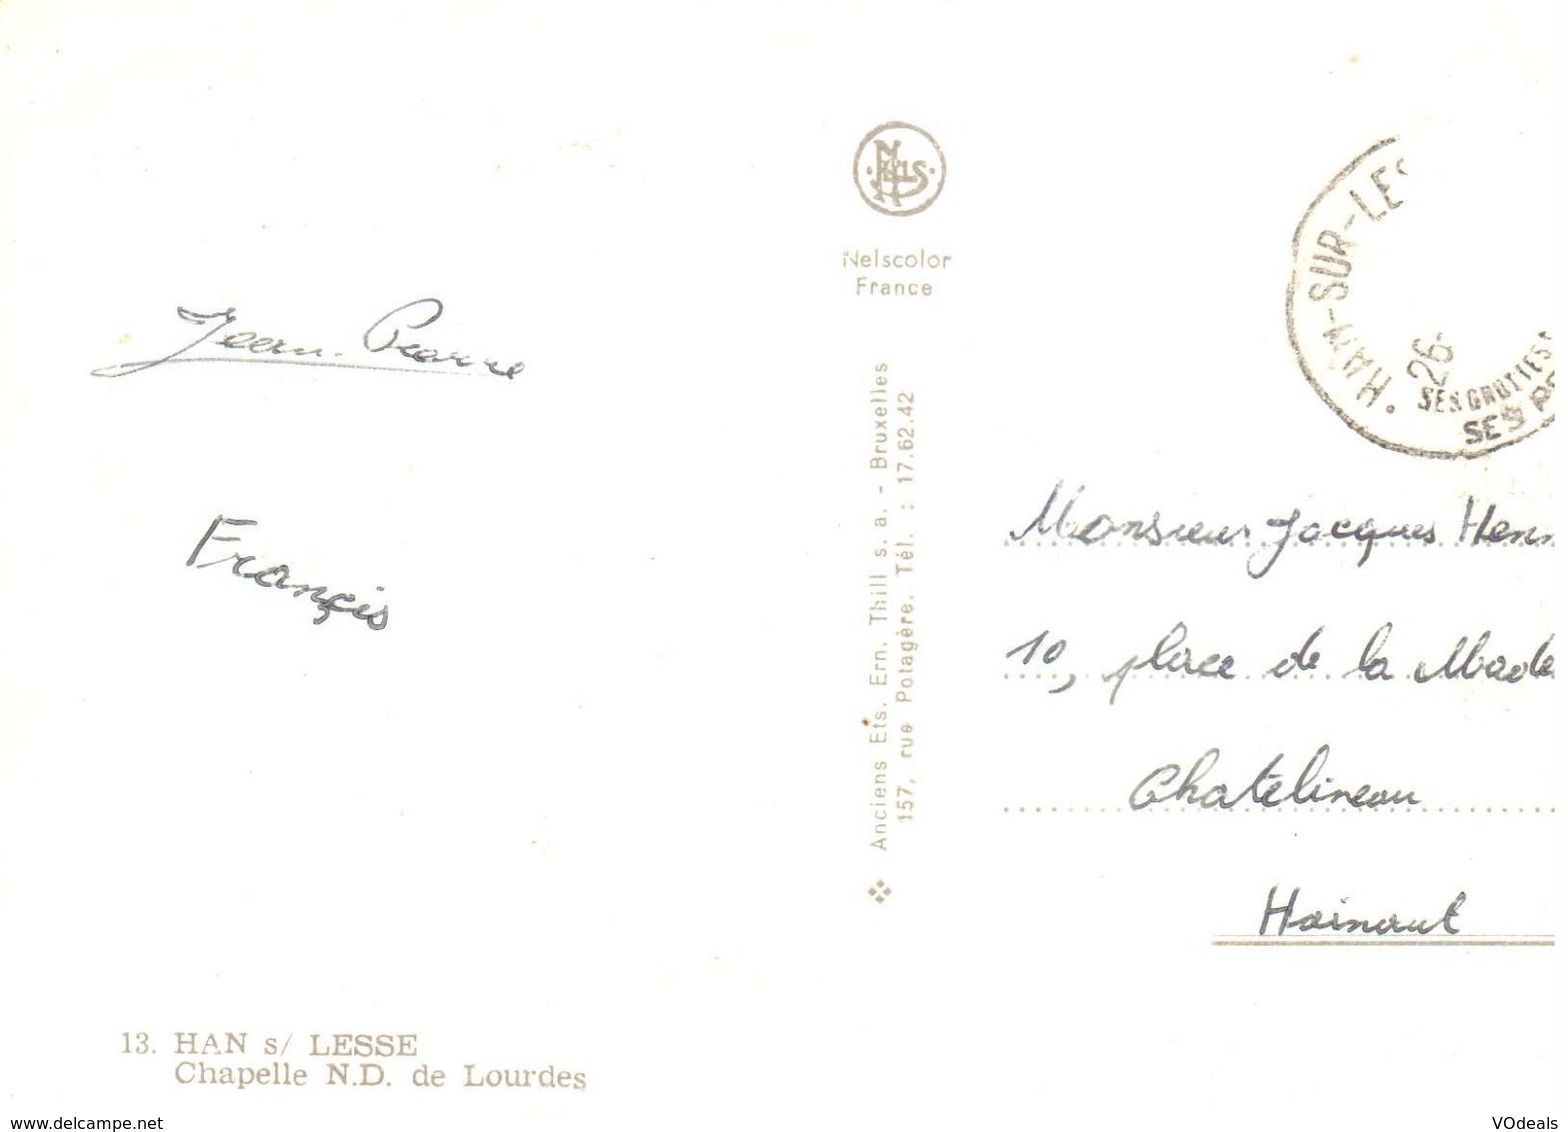 Jean-Pierre
Francis
13. HAN s/ LESSE
Chapelle N.D. de Lourdes
NELS
Nelscolor
France
Anciens Ets. Ern. Thill s. a. - Bruxelles
157, rue Potagère. Tél. : 17.62.42
HAN-SUR-LES
26
SES GROTTES
SES
Monsieur Jacques Henn
10, place de la Made
Chatelineau
Hainaut
www.delcampe.net
VOdeals